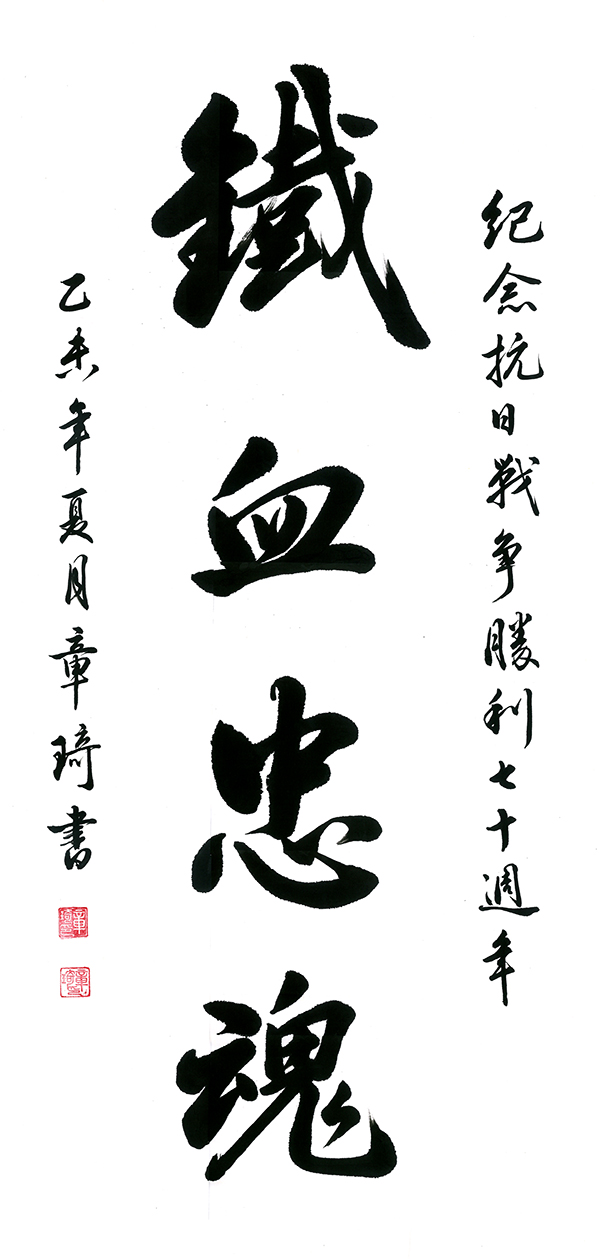 紀念抗日戰爭勝利七十週年
鐵血忠魂
乙未年夏月章琦書